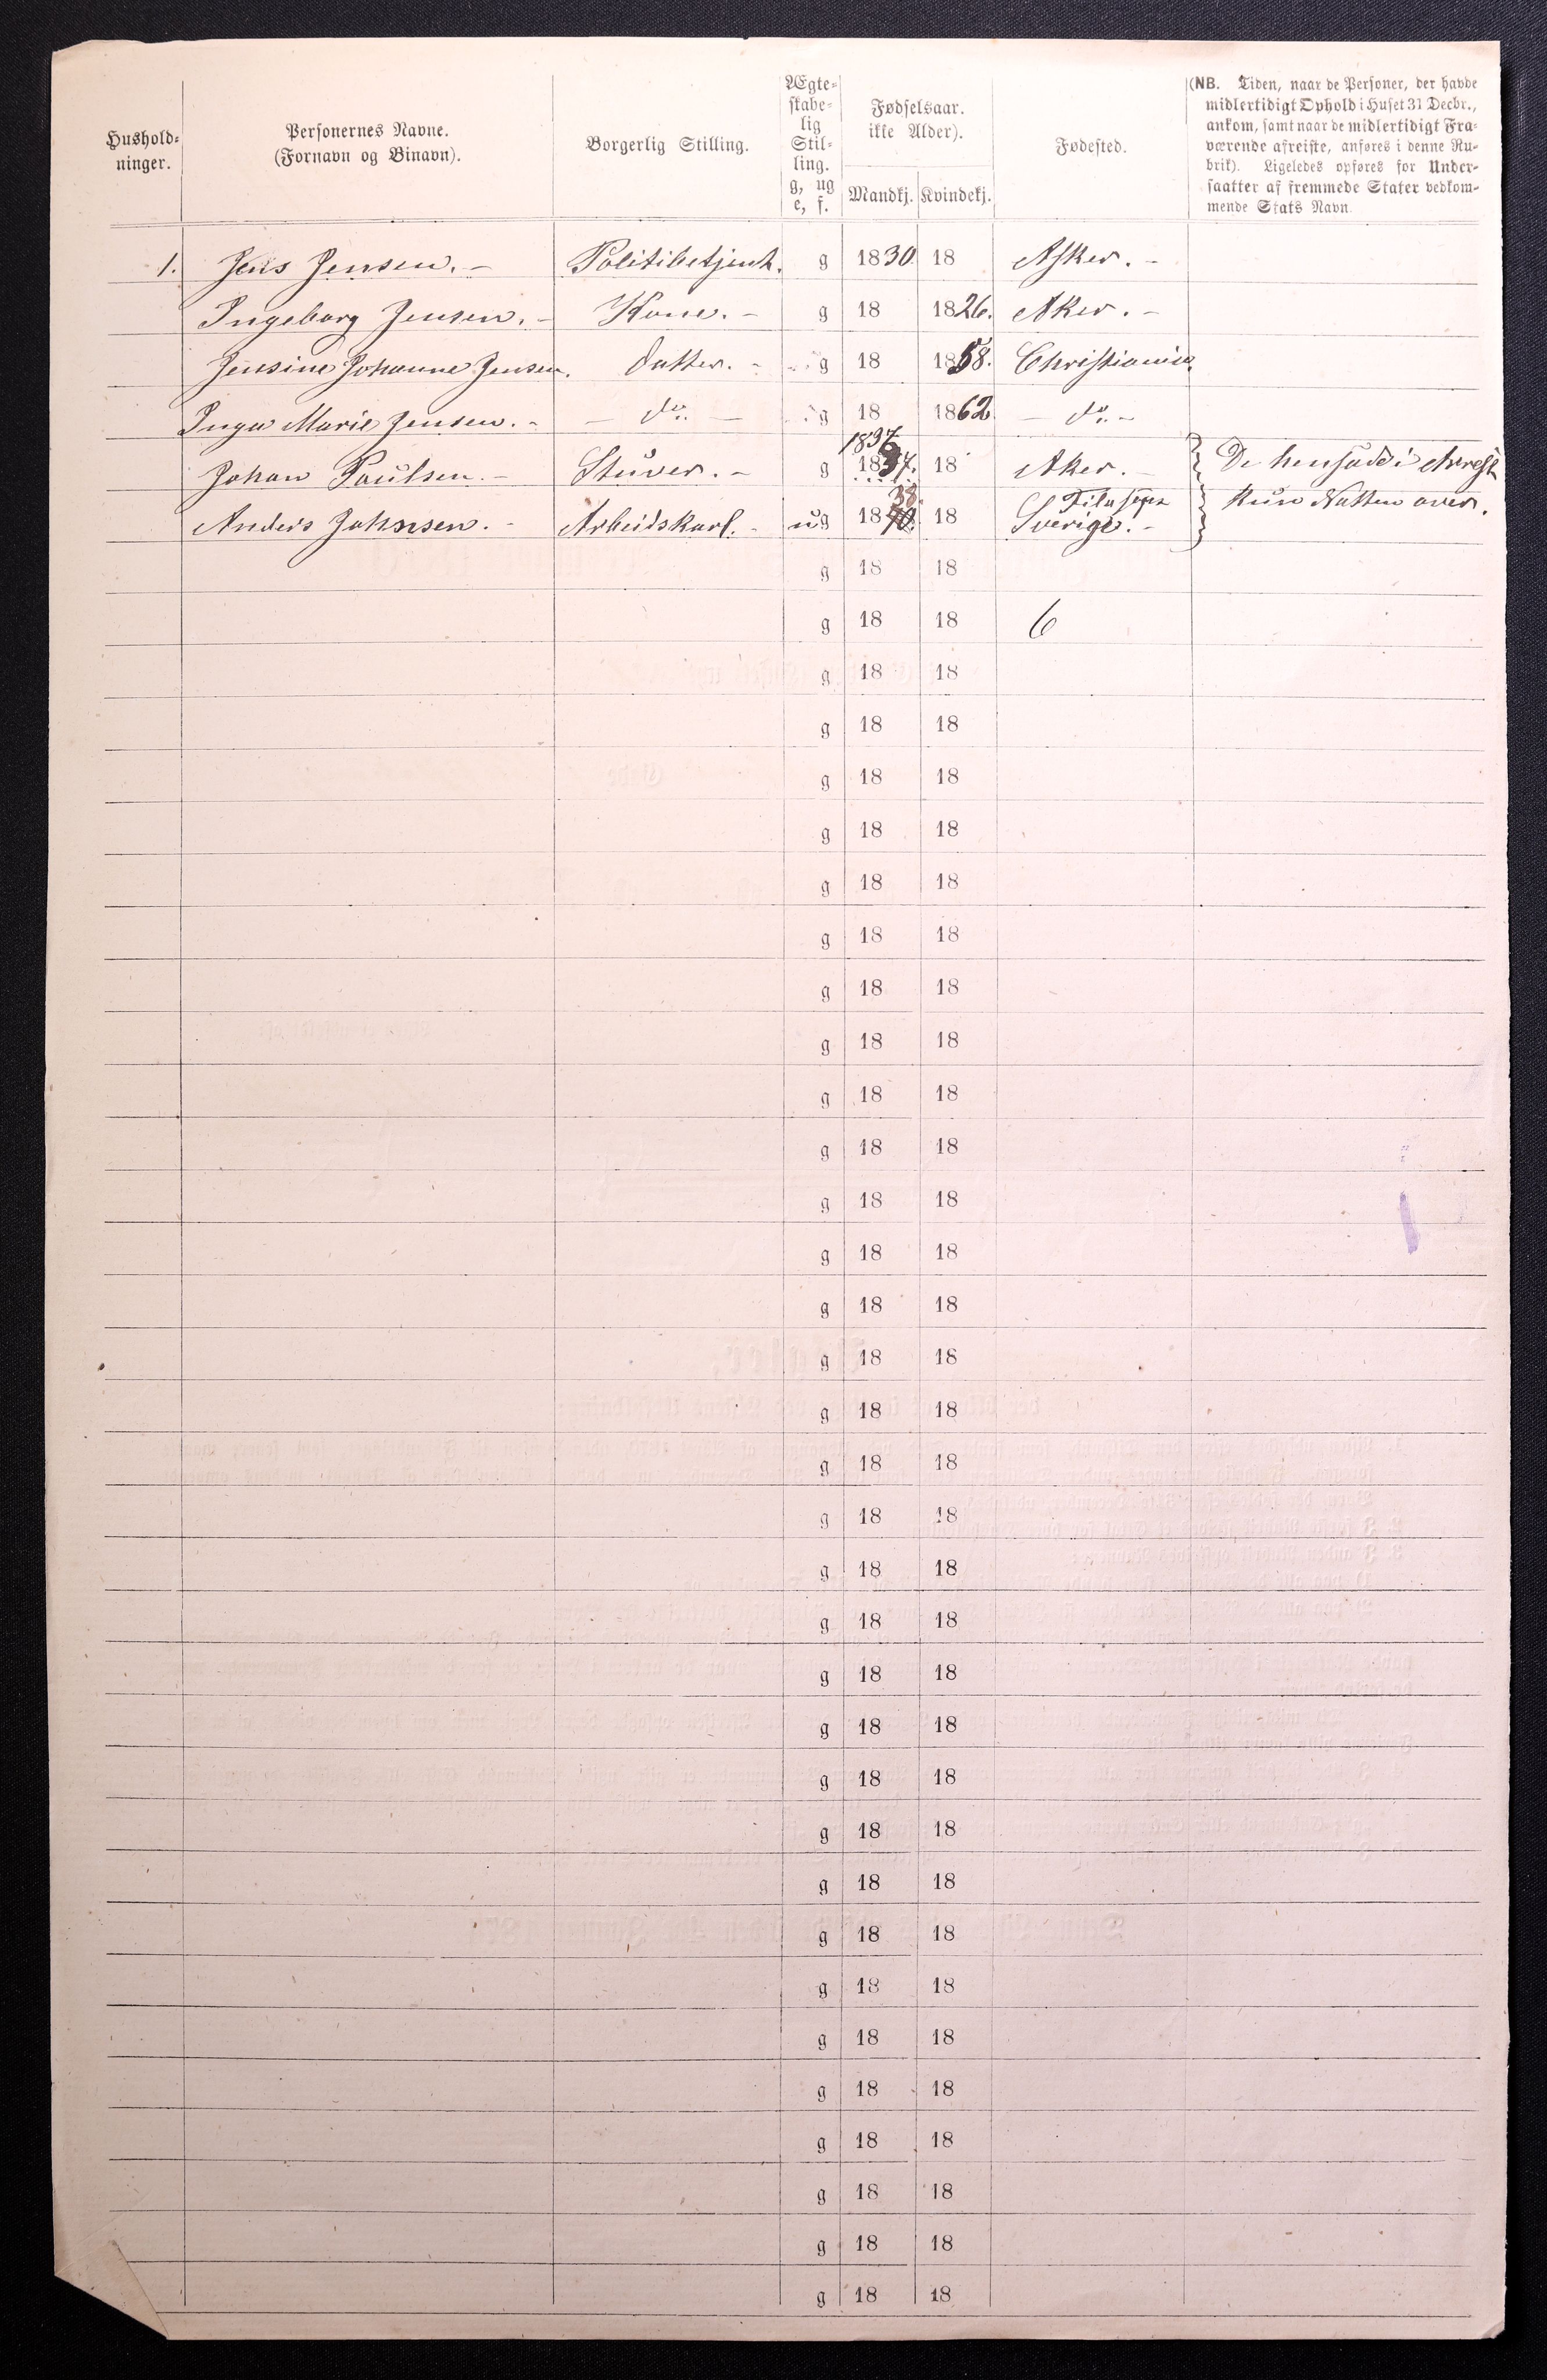 Hushold-
ninger.
Personernes Navne.
(Fornavn og Binavn).
Borgerlig Stilling.
Ægte-
skabe-
lig
Stil-
ling.
g, ug
e, f.
Fødselsaar.
ikke Alder).
Mandkj. Kvindekj.
Fødested.
(NB. Tiden, naar de Personer, der havde
midlertidigt Ophold i Huset 31 Decbr.,
ankom, samt naar de midlertidigt Fra-
værende afreiste, anføres i denne Ru-
brik). Ligeledes opføres for Under-
saatter af fremmede Stater vedkom-
mende Stats Navn.
1. Jens Jensen. - Politibetjent. g 1830. 18 Asker. -
Ingeborg Jensen. - Kone. - g 18 1826. Aker. -
Jensine Johanne Jensen. datter. - g 18 1858. Christiania.
Inga Marie Jensen. - - do. - g 18 1862 - do. -
1837
Johan Paulsen. - Stuver. - g 1837. 18 Aker. - De hensadde i Arrest
38
Anders Johnsen. - Arbeidskarl. - ug 1840. 18 Sverige. - kun Natten over.
g 18 18
g 18 18 6
g 18 18
g 18 18
g 18 18
g 18 18
g 18 18
g 18 18
g 18 18
g 18 18
g 18 18
g 18 18
g 18 18
g 18 18
g 18 18
g 18 18
g 18 18
g 18 18
g 18 18
g 18 18
g 18 18
g 18 18
g 18 18
g 18 18
g 18 18
g 18 18
g 18 18
g 18 18
g 18 18
g 18 18
g 18 18
g 18 18
g 18 18
g 18 18